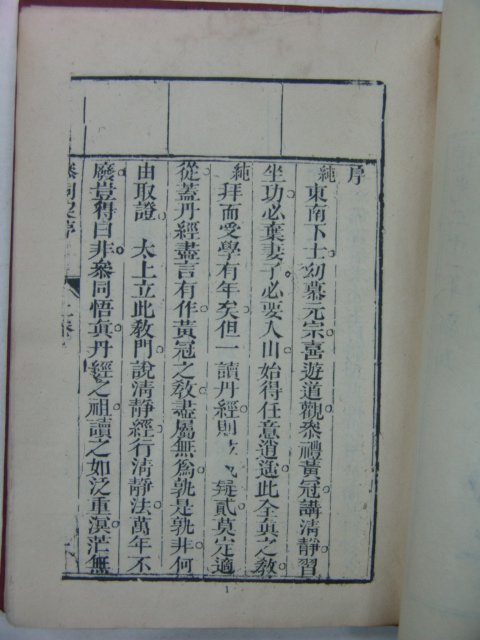 序
純東南下士幼慕元宗喜遊道觀叅禮黃冠講清靜習
坐功必棄妻子必要入山始得任意逍遙此全真之敎
純拜而受學有年矣但一讀丹經則疑貳莫定適
從蓋丹經盡言有作黃冠之敎盡屬無爲孰是孰非何
由取證 太上立此敎門說清靜經行清靜法萬年不
廢豈得曰非叅同悟眞丹經之祖讀之如泛重溟茫無
叅同契序
1